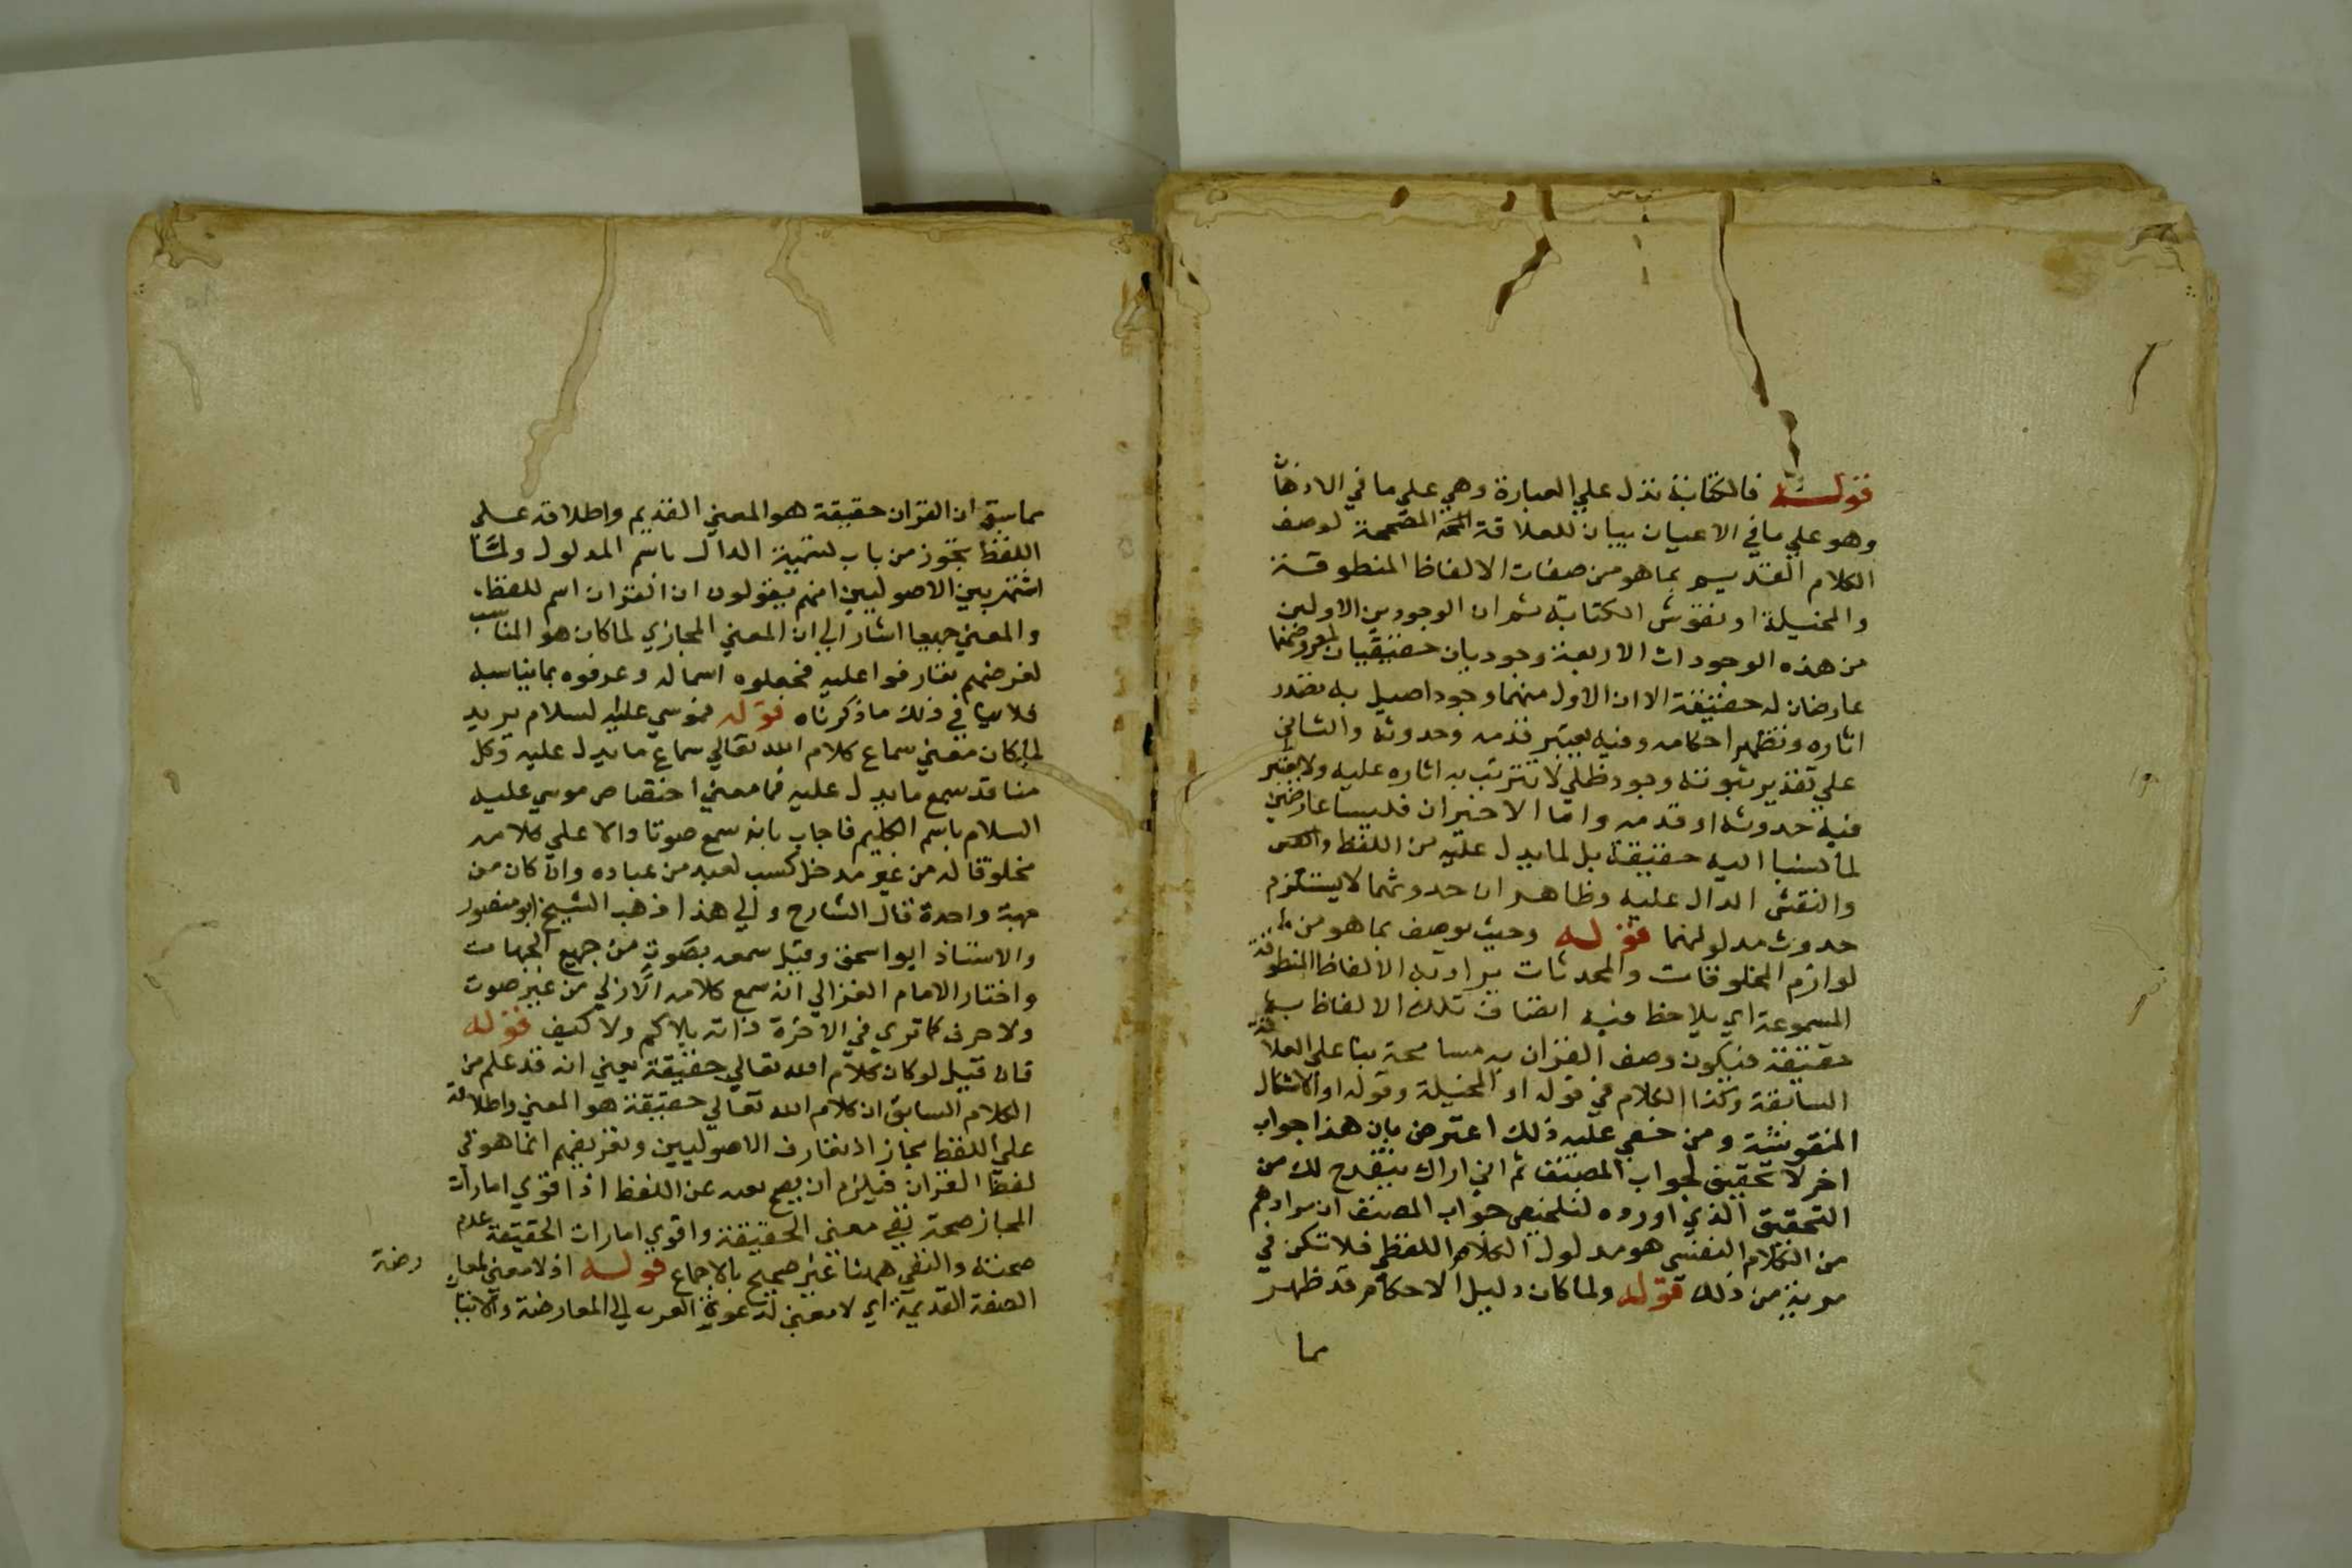 قوله فالكتابة تدل علي العبارة وهي علي ما في الاذهان
وهو علي ما في الاعيان بيان للعلاقة المصححة لوصف
الكلام القديم بما هو من صفات الالفاظ المنطوقة
والمخيلة او نقوش الكتابة ثم ان الوجودين الاولين
من هذه الوجودات الاربعة وجوديان حقيقيان لمعروضهما
عارضان له حقيقة الا ان الاول منهما وجود اصيل به تصدر
اثاره وتظهر احكامه وفيه يعتبر قدمه وحدوثه والثاني
علي تقدير ثبوته وجود ظلي لا تترتب به اثاره عليه ولا يعتبر
فيه حدوثه او قدمه واما الاخيران فليسا عارضين
لما نسبا اليه حقيقة بل لما يدل عليه من اللفظ
والنقش الدال عليه وظاهر ان حدوثهما لا يستلزم
حدوث مدلولهما قوله وحيث يوصف بما هو من
لوازم المخلوقات والمحدثات يراد به الالفاظ المنطوقة
المسموعة اي يلاحظ فيه اتصاف تلك الالفاظ به
حقيقة فيكون وصف القران به مسامحة بنا علي العلاقة
السابقة وكذا الكلام في قوله او المخيلة وقوله او الاشكال
المنقوشة ومن خفي عليه ذلك اعترض بان هذا جواب
اخر لا تحقيق لجواب المصنف ثم اني اراك ينقدح لك من
التحقيق الذي اورده لتلخيص جواب المصنف ان مرادهم
من الكلام النفسي هو مدلول الكلام اللفظي فلا تكن في
مرية من ذلك قوله ولما كان دليل الاحكام قد ظهر
مما
مما سبق ان القران حقيقة هو المعني القديم واطلاقه علي
اللفظ تجوز من باب تسمية الدال باسم المدلول ولما
اشتهر بين الاصوليين انهم يقولون ان القران اسم للفظ
والمعني جميعا اشار الي ان المعني المجازي لما كان هو المناسب
لغرضهم تعارفوا عليه فجعلوه اسما له وعرفوه بما يناسبه
فلا ينافي ذلك ما ذكرناه قوله فموسي عليه السلام يريد
لما كان معني سماع كلام الله تعالي سماع ما يدل عليه وكل
منا قد سمع ما يدل عليه فما معني اختصاص موسي عليه
السلام باسم الكليم فاجاب بانه سمع صوتا دالا علي كلامه
مخلوقا له من غير مدخل كسب لعبد من عباده وان كان من
جهة واحدة قال الشارح والي هذا ذهب الشيخ ابو منصور
والاستاذ ابو اسحق وقيل سمعه بصوت من جميع الجهات
واختار الامام الغزالي انه سمع كلامه الازلي من غير صوت
ولا حرف كما تري في الاخرة ذاته بلا كم ولا كيف قوله
فان قيل لو كان كلام الله تعالي حقيقة يعني انه قد علم من
الكلام السابق ان كلام الله تعالي حقيقة هو المعني واطلاقه
علي اللفظ مجاز اذ تعارف الاصوليين وتعريفهم انما هو في
لفظ القران فيلزم ان يصح نفيه عن اللفظ اذ اقوي امارات
المجاز صحة نفي معني الحقيقة واقوي امارات الحقيقة عدم
صحته والنفي ههنا غير صحيح بالاجماع قوله اذ لا معني لمعارضة
الصفة القديمة اي لا معني لدعوة العرب الي المعارضة والاتيان